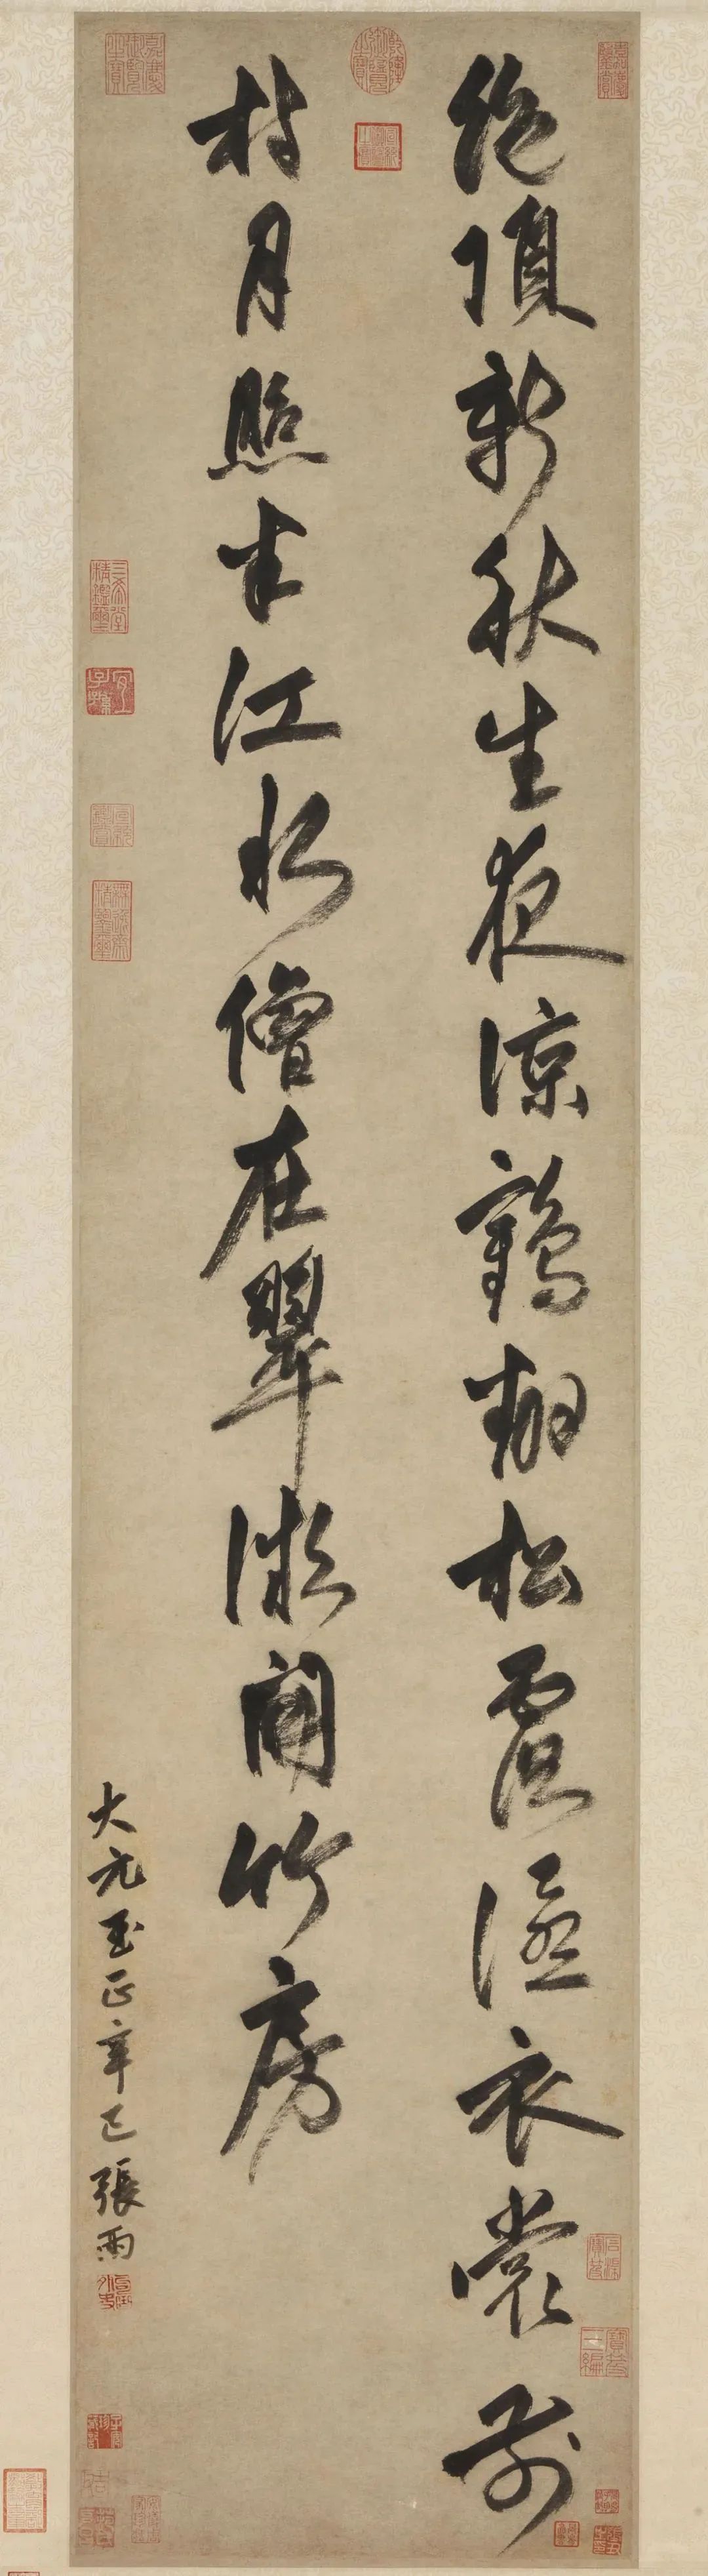 絶頂新秋生夜涼鶴翻松露滴衣裳前
村月照半江水僧在翠微開竹房
大元至正辛巳張雨